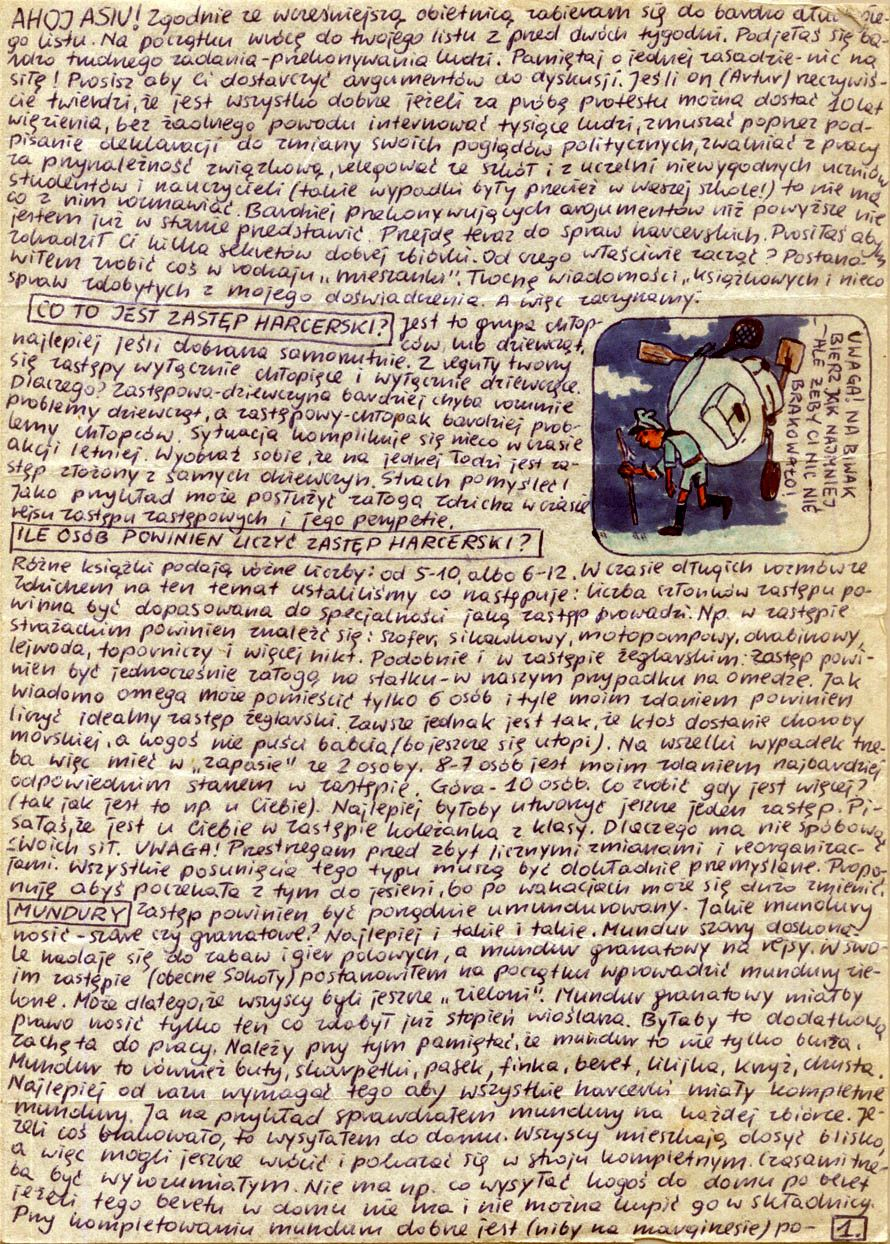 AHOJ ASIU! Zgodnie ze wcześniejszą obietnicą zabieram się do bardzo
go listu. Na początku wrócę do twojego listu z przed dwóch tygodni. Podjęłaś się ba-
rdzo trudnego zadania-przekonywania ludzi. Pamiętaj o jednej zasadzie-nic na
siłę! Prosisz aby Ci dostarczyć argumentów do dyskusji. Jeśli on (Artur) rzeczywiś-
cie twierdzi, że jest wszystko dobrze jeżeli za próbę protestu można dostać 10 lat
więzienia, bez żadnego powodu internować tysiące ludzi, zmuszać poprzez pod-
pisanie deklaracji do zmiany swoich poglądów politycznych, zwalniać z pracy
za przynależność związkową, relegować ze szkół i z uczelni niewygodnych uczniów
studentów i nauczycieli (takie wypadki były przecież w waszej szkole!) to nie ma
co z nim rozmawiać. Bardziej przekonywujących argumentów niż powyższe nie
jestem już w stanie przedstawić. Przejdę teraz do spraw harcerskich. Prosiłaś abym
zdradził Ci kilka sekretów dobrej zbiórki. Od czego właściwie zacząć? Postano-
wiłem zrobić coś w rodzaju „mieszanki". Trochę wiadomości „książkowych i nieco
spraw zdobytych z mojego doświadczenia. A więc zaczynamy:
CO TO JEST ZASTĘP HARCERSKI? Jest to grupa chłop-
ców, lub dziewcząt,
najlepiej jeśli dobrana samorzutnie. Z reguły tworzy
się zastępy wyłącznie chłopięce i wyłącznie dziewczęce.
Dlaczego? Zastępowa-dziewczyna bardziej chyba rozumie
problemy dziewcząt, a zastępowy-chłopak bardziej prob-
lemy chłopców. Sytuacja komplikuje się nieco w czasie
akcji letniej. Wyobraź sobie, że na jednej łodzi jest za-
stęp złożony z samych dziewczyn. Strach pomyśleć!
Jako przykład może posłużyć załoga Zdzicha w czasie
rejsu zastępu zastępowych i jego perypetie.
UWAGA! NA BIWAK
BIERZ JAK NAJMNIEJ
-ALE ŻEBY CI NIC NIE
BRAKOWAŁO!
ILE OSÓB POWINIEN LICZYĆ ZASTĘP HARCERSKI?
Różne książki podają różne liczby: od 5-10, albo 6-12. W czasie długich rozmów ze
Zdzichem na ten temat ustaliliśmy co następuje: liczba członków zastępu po-
winna być dopasowana do specjalności jaką zastęp prowadzi. Np. w zastępie
strażackim powinien znaleźć się: szofer, sikawkowy, motopompowy, drabinowy,
lejwoda, toporniczy i więcej nikt. Podobnie i w zastępie żeglarskim: zastęp powi-
nien być jednocześnie załogą na statku-w naszym przypadku na omedze. Jak
wiadomo omega może pomieścić tylko 6 osób i tyle moim zdaniem powinien
liczyć idealny zastęp żeglarski. Zawsze jednak jest tak, że ktoś dostanie choroby
morskiej, a kogoś nie puści babcia (bo jeszcze się utopi). Na wszelki wypadek trze-
ba więc mieć w „zapasie" ze 2 osoby. 8-7 osób jest moim zdaniem najbardziej
odpowiednim stanem w zastępie. Góra - 10 osób. Co zrobić gdy jest więcej?
(tak jak jest to np. u Ciebie). Najlepiej byłoby utworzyć jeszcze jeden zastęp. Pi-
sałaś, że jest u Ciebie w zastępie koleżanka z klasy. Dlaczego ma nie spróbować
swoich sił. UWAGA! Przestrzegam przed zbyt licznymi zmianami i reorganizac-
jami. Wszystkie posunięcia tego typu muszą być dokładnie przemyślane. Propo-
nuję abyś poczekała z tym do jesieni, bo po wakacjach może się dużo zmienić.
MUNDURY Zastęp powinien być porządnie umundurowany. Jakie mundury
nosić-szare czy granatowe? Najlepiej i takie i takie. Mundur szary doskona-
le nadaje się do zabaw i gier polowych, a mundur granatowy na rejsy. W swo-
im zastępie (obecne Sokoły) postanowiłem na początku wprowadzić mundury zie-
lone. Może dlatego, że wszyscy byli jeszcze „zieloni". Mundur granatowy miałby
prawo nosić tylko ten co zdobył już stopień wioślarza. Byłaby to dodatkowa
zachęta do pracy. Należy przy tym pamiętać, że mundur to nie tylko bluza.
Mundur to również buty, skarpetki, pasek, finka, beret, lilijka, krzyż, chusta.
Najlepiej od razu wymagać tego aby wszystkie harcerki miały kompletne
mundury. Ja na przykład sprawdzałem mundury na każdej zbiórce. Je-
żeli coś brakowało, to wysyłałem do domu. Wszyscy mieszkają dosyć blisko,
a więc mogli jeszcze wrócić i pokazać się w stroju kompletnym. Czasami trze-
ba być wyrozumiałym. Nie ma np. co wysyłać kogoś do domu po beret
jeżeli tego beretu w domu nie ma i nie można kupić go w składnicy.
Przy kompletowaniu munduru dobrze jest (niby na marginesie) po- 1.